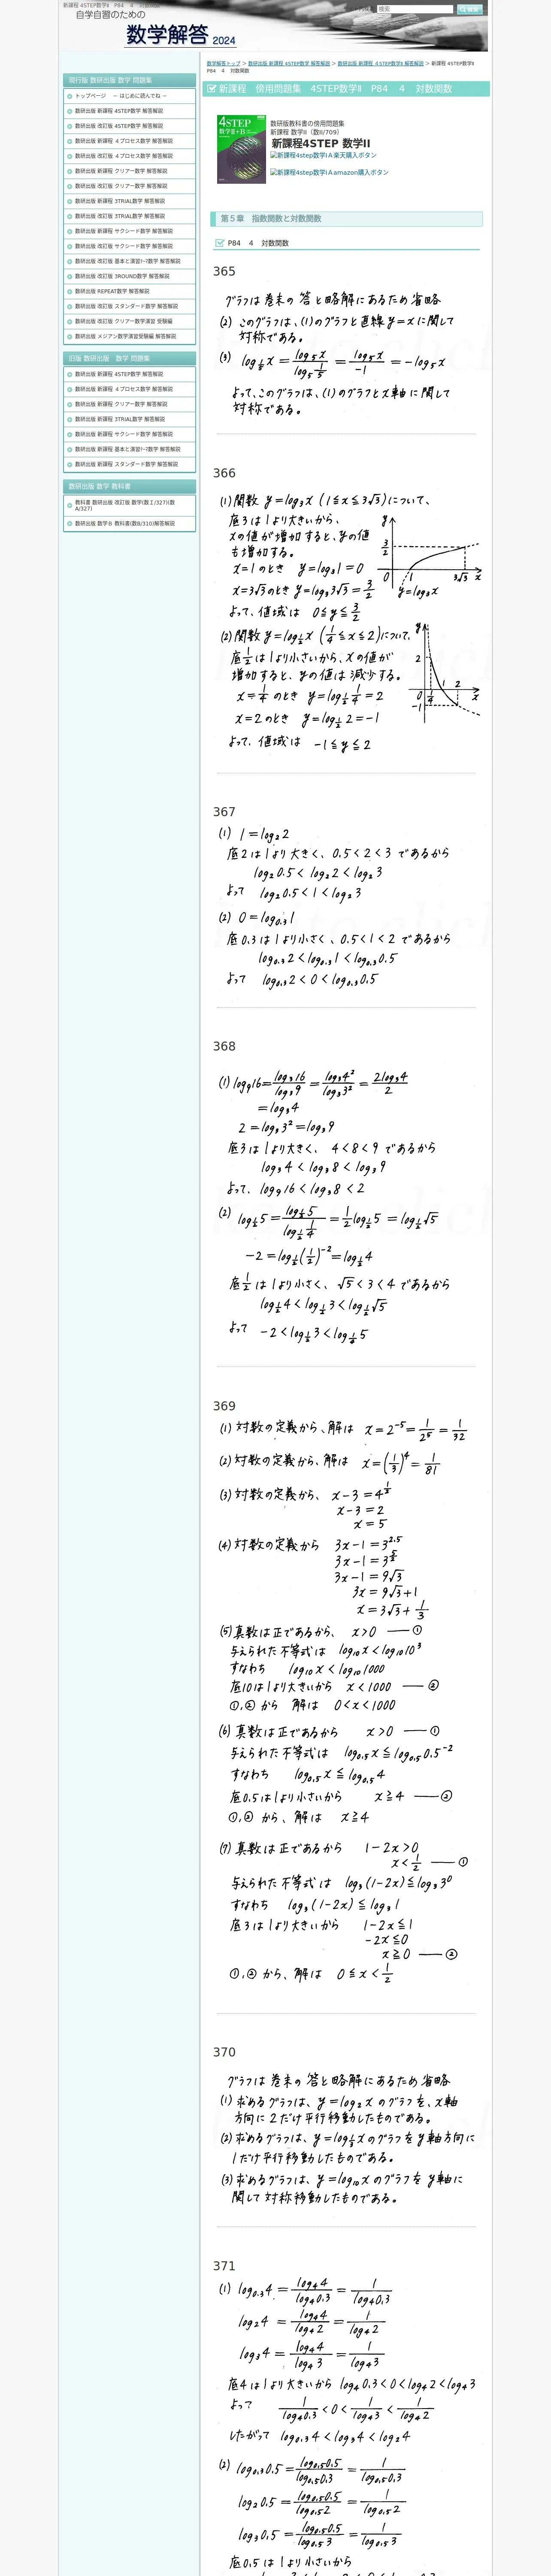 新課程 4STEP数学Ⅱ P84 4 対数関数
自学自習のための
数学解答 2024
検索
数学解答トップ ＞ 数研出版 新課程 4STEP数学 解答解説 ＞ 数研出版 新課程 4STEP数学Ⅱ 解答解説 ＞ 新課程 4STEP数学Ⅱ
P84 4 対数関数
現行版 数研出版 数学 問題集
トップページ － はじめに読んでね －
数研出版 新課程 4STEP数学 解答解説
数研出版 改訂版 4STEP数学 解答解説
数研出版 新課程 4プロセス数学 解答解説
数研出版 改訂版 4プロセス数学 解答解説
数研出版 新課程 クリアー数学 解答解説
数研出版 改訂版 クリアー数学 解答解説
数研出版 新課程 3TRIAL数学 解答解説
数研出版 改訂版 3TRIAL数学 解答解説
数研出版 新課程 サクシード数学 解答解説
数研出版 改訂版 サクシード数学 解答解説
数研出版 改訂版 3ROUND数学 解答解説
数研出版 REPEAT数学 解答解説
数研出版 改訂版 スタンダード数学 解答解説
数研出版 改訂版 クリアー数学演習 受験編
数研出版 メジアン数学演習受験編 解答解説
旧版 数研出版 数学 問題集
数研出版 新課程 4STEP数学 解答解説
数研出版 新課程 4プロセス数学 解答解説
数研出版 新課程 クリアー数学 解答解説
数研出版 新課程 3TRIAL数学 解答解説
数研出版 新課程 サクシード数学 解答解説
数研出版 新課程 スタンダード数学 解答解説
数研出版 数学 教科書
教科書 数研出版 改訂版 数学(数Ⅰ/327)(数
A/327)
数研出版 数学Ｂ 教科書(数B/310)解答解説
新課程 傍用問題集 4STEP数学Ⅱ P84 4 対数関数
4STEP
数学Ⅱ+B
数研版教科書の傍用問題集
新課程 数学Ⅱ（数II/709）
新課程4STEP 数学II
新課程4step数学ⅠA楽天購入ボタン
新課程4step数学ⅠAamazon購入ボタン
第５章 指数関数と対数関数
P84 4 対数関数
365
グラフは巻末の答と略解にあるため省略
(2) このグラフは、(1)のグラフと直線 y=x に関して
対称である。
(3) log_{1/5} x = log₅x / log₅(1/5) = log₅x / -1 = -log₅x
よって、このグラフは、(1)のグラフとx軸に関して
対称である。
366
(1) 関数 y=log₃x (1≦x≦3√3)について、
底3は1より大きいから、
xの値が増加すると、yの値
も増加する。
x=1のとき y=log₃1=0
x=3√3のとき y=log₃3√3=3/2
よって、値域は 0≦y≦3/2
y 3/2 0 1 3√3 x y=log₃x
(2) 関数 y=log_{1/2} x (1/4≦x≦2)について、
底1/2は1より小さいから、xの値が
増加すると、yの値は減少する。
x=1/4のとき y=log_{1/2} 1/4=2
x=2のとき y=log_{1/2} 2=-1
よって、値域は -1≦y≦2
y 2 0 1/4 1 2 x -1
367
(1) 1=log₂2
底2は1より大きく、0.5<2<3 であるから
log₂0.5<log₂2<log₂3
よって log₂0.5<1<log₂3
(2) 0=log_{0.3}1
底0.3は1より小さく、0.5<1<2 であるから
log_{0.3}2<log_{0.3}1<log_{0.3}0.5
よって log_{0.3}2<0<log_{0.3}0.5
368
(1) log₉16=log₃16/log₃9=log₃4²/log₃3²=2log₃4/2
=log₃4
2=log₃3²=log₃9
底3は1より大きく、4<8<9 であるから
log₃4<log₃8<log₃9
よって、log₉16<log₃8<2
(2) log_{1/4}5=log_{1/2}5/log_{1/2}(1/4)=1/2 log_{1/2}5=log_{1/2}√5
-2=log_{1/2}(1/2)^{-2}=log_{1/2}4
底1/2は1より小さく、√5<3<4 であるから
log_{1/2}4<log_{1/2}3<log_{1/2}√5
よって -2<log_{1/2}3<log_{1/4}5
369
(1) 対数の定義から、解は x=2^{-5}=1/2⁵=1/32
(2) 対数の定義から、解は x=(1/3)⁴=1/81
(3) 対数の定義から、x-3=4^{1/2}
x-3=2
x=5
(4) 対数の定義から 3x-1=3^{2.5}
3x-1=3^{5/2}
3x-1=9√3
3x=9√3+1
x=3√3+1/3
(5) 真数は正であるから、 x>0 ―①
与えられた不等式は log₁₀x<log₁₀10³
すなわち log₁₀x<log₁₀1000
底10は1より大きいから x<1000 ―②
①,②から 解は 0<x<1000
(6) 真数は正であるから x>0 ―①
与えられた不等式は log_{0.5}x≦log_{0.5}0.5^{-2}
すなわち log_{0.5}x≦log_{0.5}4
底0.5は1より小さいから x≧4 ―②
①,②から、解は x≧4
(7) 真数は正であるから 1-2x>0
x<1/2 ―①
与えられた不等式は log₃(1-2x)≦log₃3⁰
すなわち log₃(1-2x)≦log₃1
底3は1より大きいから 1-2x≦1
-2x≦0
x≧0 ―②
①,②から、解は 0≦x<1/2
370
グラフは巻末の答と略解にあるため省略
(1) 求めるグラフは、y=log₂xのグラフを、x軸
方向に2だけ平行移動したものである。
(2) 求めるグラフは、y=log_{1/3}xのグラフをy軸方向に
1だけ平行移動したものである。
(3) 求めるグラフは、y=log₁₀xのグラフをy軸に
関して対称移動したものである。
371
(1) log_{0.3}4=log₄4/log₄0.3=1/log₄0.3
log₂4=log₄4/log₄2=1/log₄2
log₃4=log₄4/log₄3=1/log₄3
底4は1より大きいから log₄0.3<0<log₄2<log₄3
よって 1/log₄0.3<0<1/log₄3<1/log₄2
したがって log_{0.3}4<log₃4<log₂4
(2) log_{0.3}0.5=log_{0.5}0.5/log_{0.5}0.3=1/log_{0.5}0.3
log₂0.5=log_{0.5}0.5/log_{0.5}2=1/log_{0.5}2
log₃0.5=log_{0.5}0.5/log_{0.5}3=1/log_{0.5}3
底0.5は1より小さいから